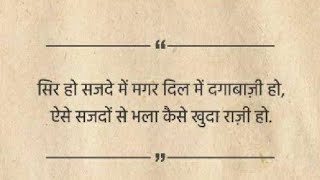 सिर हो सजदे में मगर दिल में दगाबाज़ी हो,
ऐसे सजदों से भला कैसे खुदा राज़ी हो.